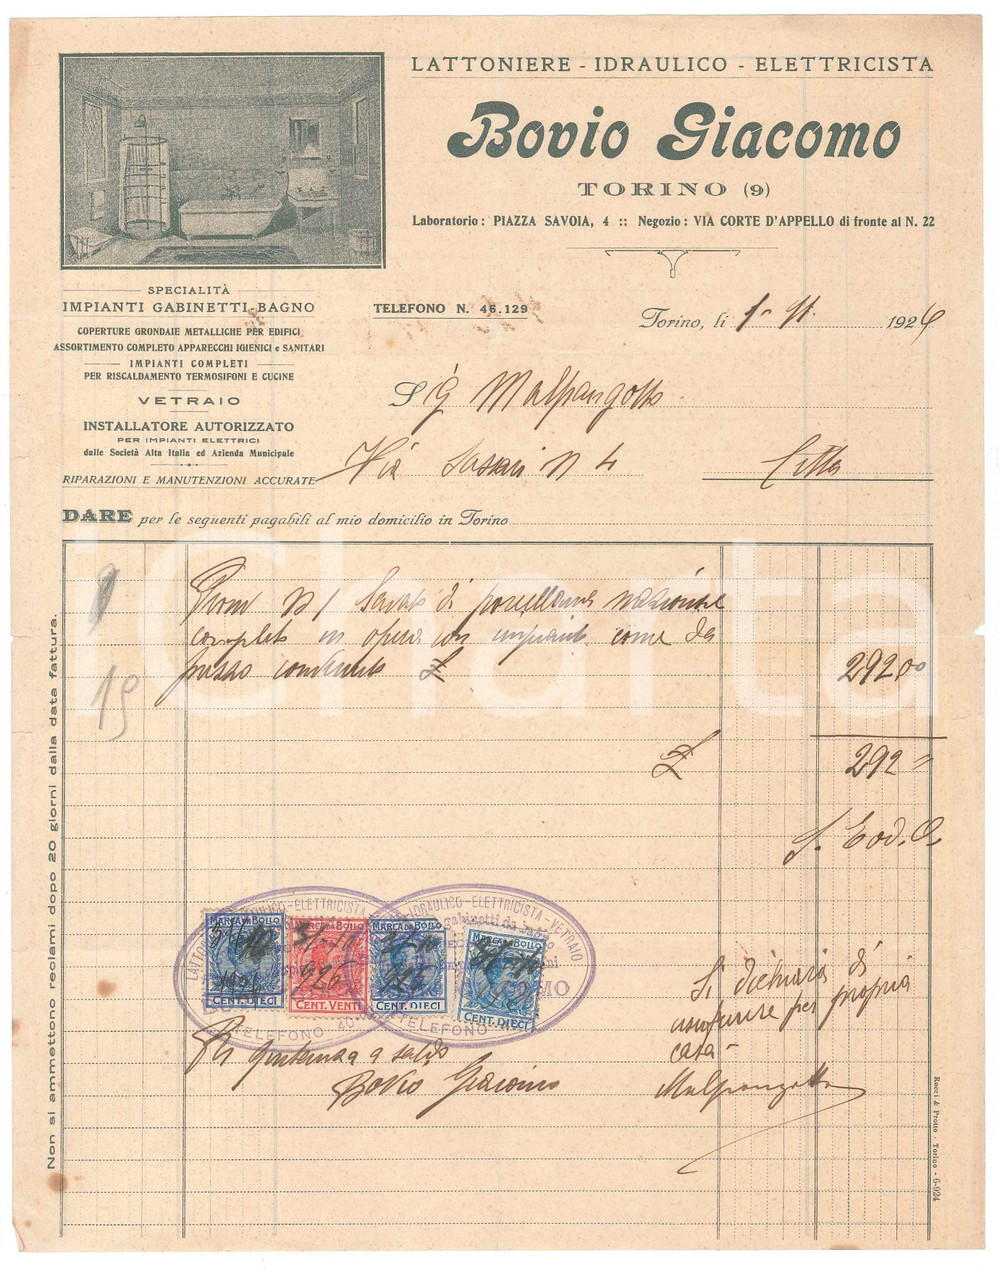 LATTONIERE - IDRAULICO - ELETTRICISTA
Bovio Giacomo
TORINO (9)
Laboratorio: PIAZZA SAVOIA, 4 :: Negozio: VIA CORTE D'APPELLO di fronte al N. 22
SPECIALITÀ
IMPIANTI GABINETTI-BAGNO
COPERTURE GRONDAIE METALLICHE PER EDIFICI
ASSORTIMENTO COMPLETO APPARECCHI IGIENICI e SANITARI
IMPIANTI COMPLETI
PER RISCALDAMENTO TERMOSIFONI E CUCINE
VETRAIO
INSTALLATORE AUTORIZZATO
PER IMPIANTI ELETTRICI
dalle Società Alta Italia ed Azienda Municipale
RIPARAZIONI E MANUTENZIONI ACCURATE
TELEFONO N. 46.129
Torino, li 1- 1926
Sig Malpangotto
Via Sassari N 4 Città
DARE per le seguenti pagabili al mio domicilio in Torino
N 1 di porcellana nazionale
completo in opera con impianto come da
prezzo convenuto £ 292,00
19
£ 292"
S. E. od. O.
MARCA DA BOLLO
CENT. DIECI
MARCA DA BOLLO
CENT. VENTI
MARCA DA BOLLO
CENT. DIECI
MARCA DA BOLLO
CENT. DIECI
IDRAULICO-ELETTRICISTA-VETRAIO
TELEFONO
Per quietanza a saldo
Bovio Giacomo
Si dichiara di
usufruire per propria
casa-
Malpangotto
Non si ammettono reclami dopo 20 giorni dalla data fattura.
Rocci & Protto - Torino - 6-924
iCharta